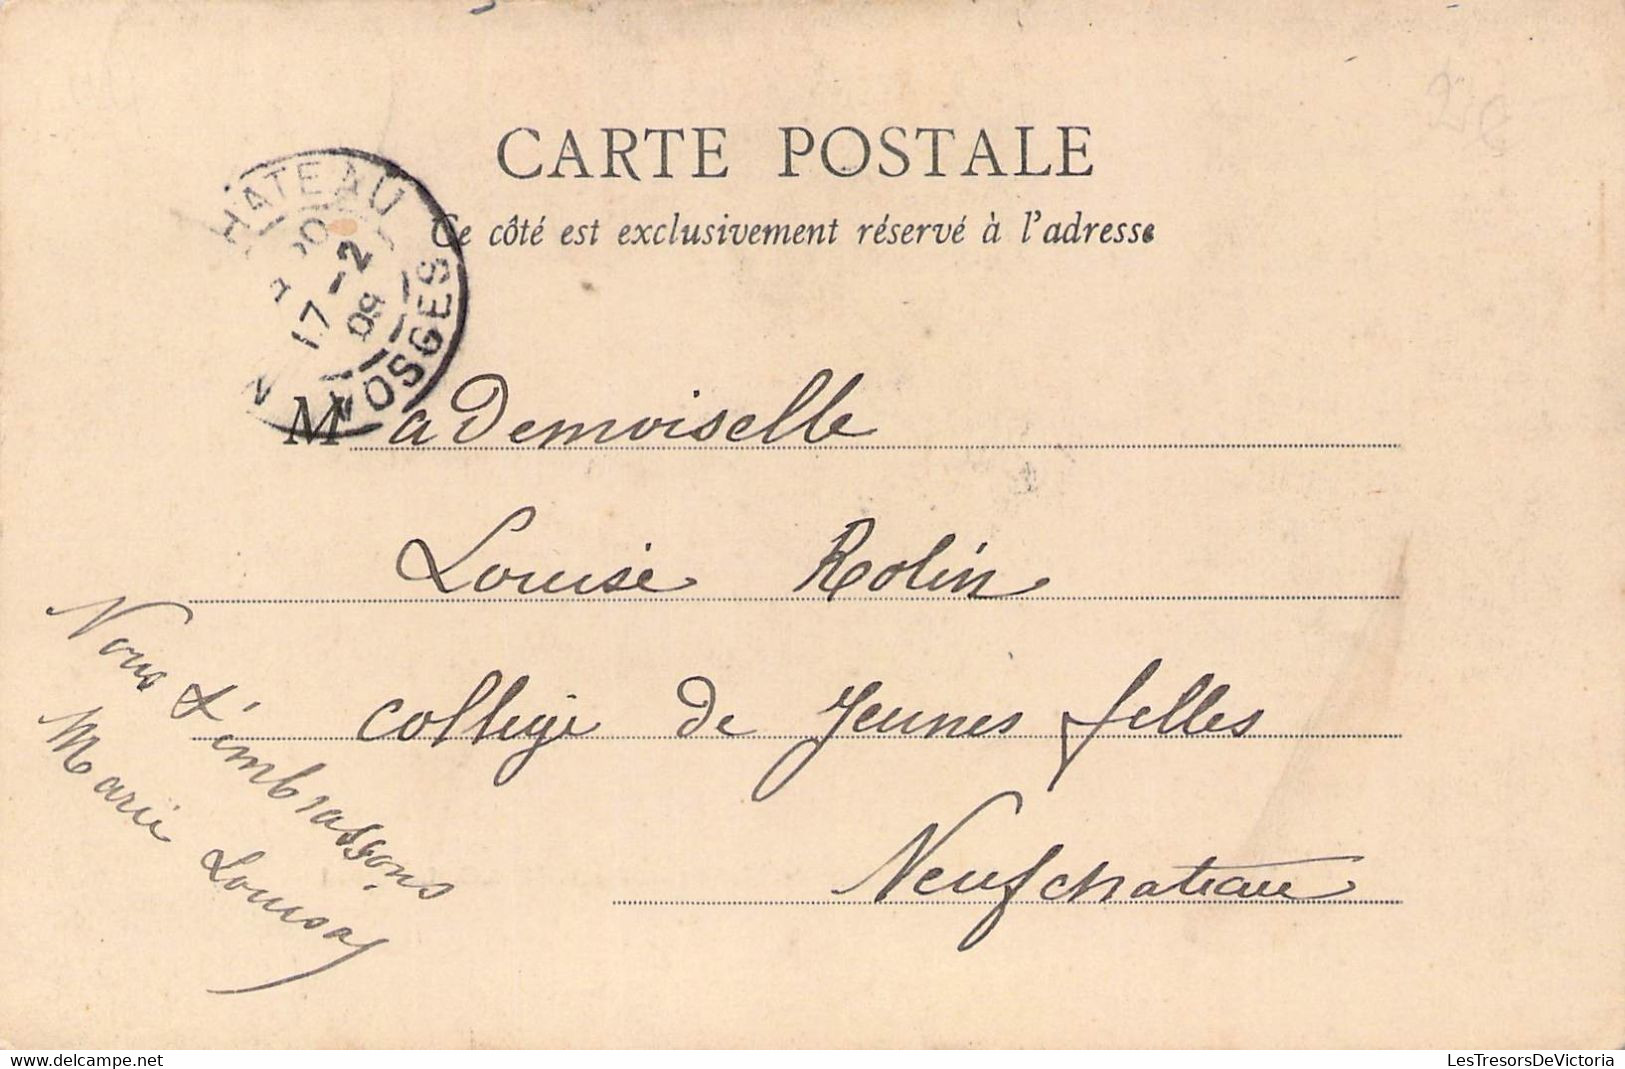 CARTE POSTALE
Ce côté est exclusivement réservé à l'adresse
HATEAU
17 -2
09
VOSGES
Mademoiselle
Louise Rolin
college de Jeunes filles
Neufchateau
Nous t'embrassons
Marie Louisa
LesTresorsDeVictoria